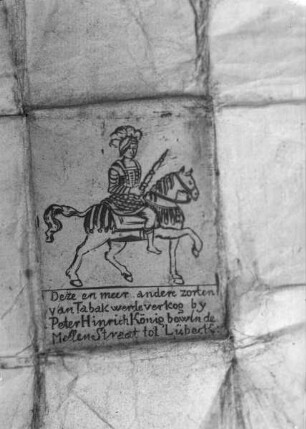 Deze en meer andere zorten
van Tabak werde verkog by
Peter Hinrich König bowin de
Mollen Streat tot Lübeck.